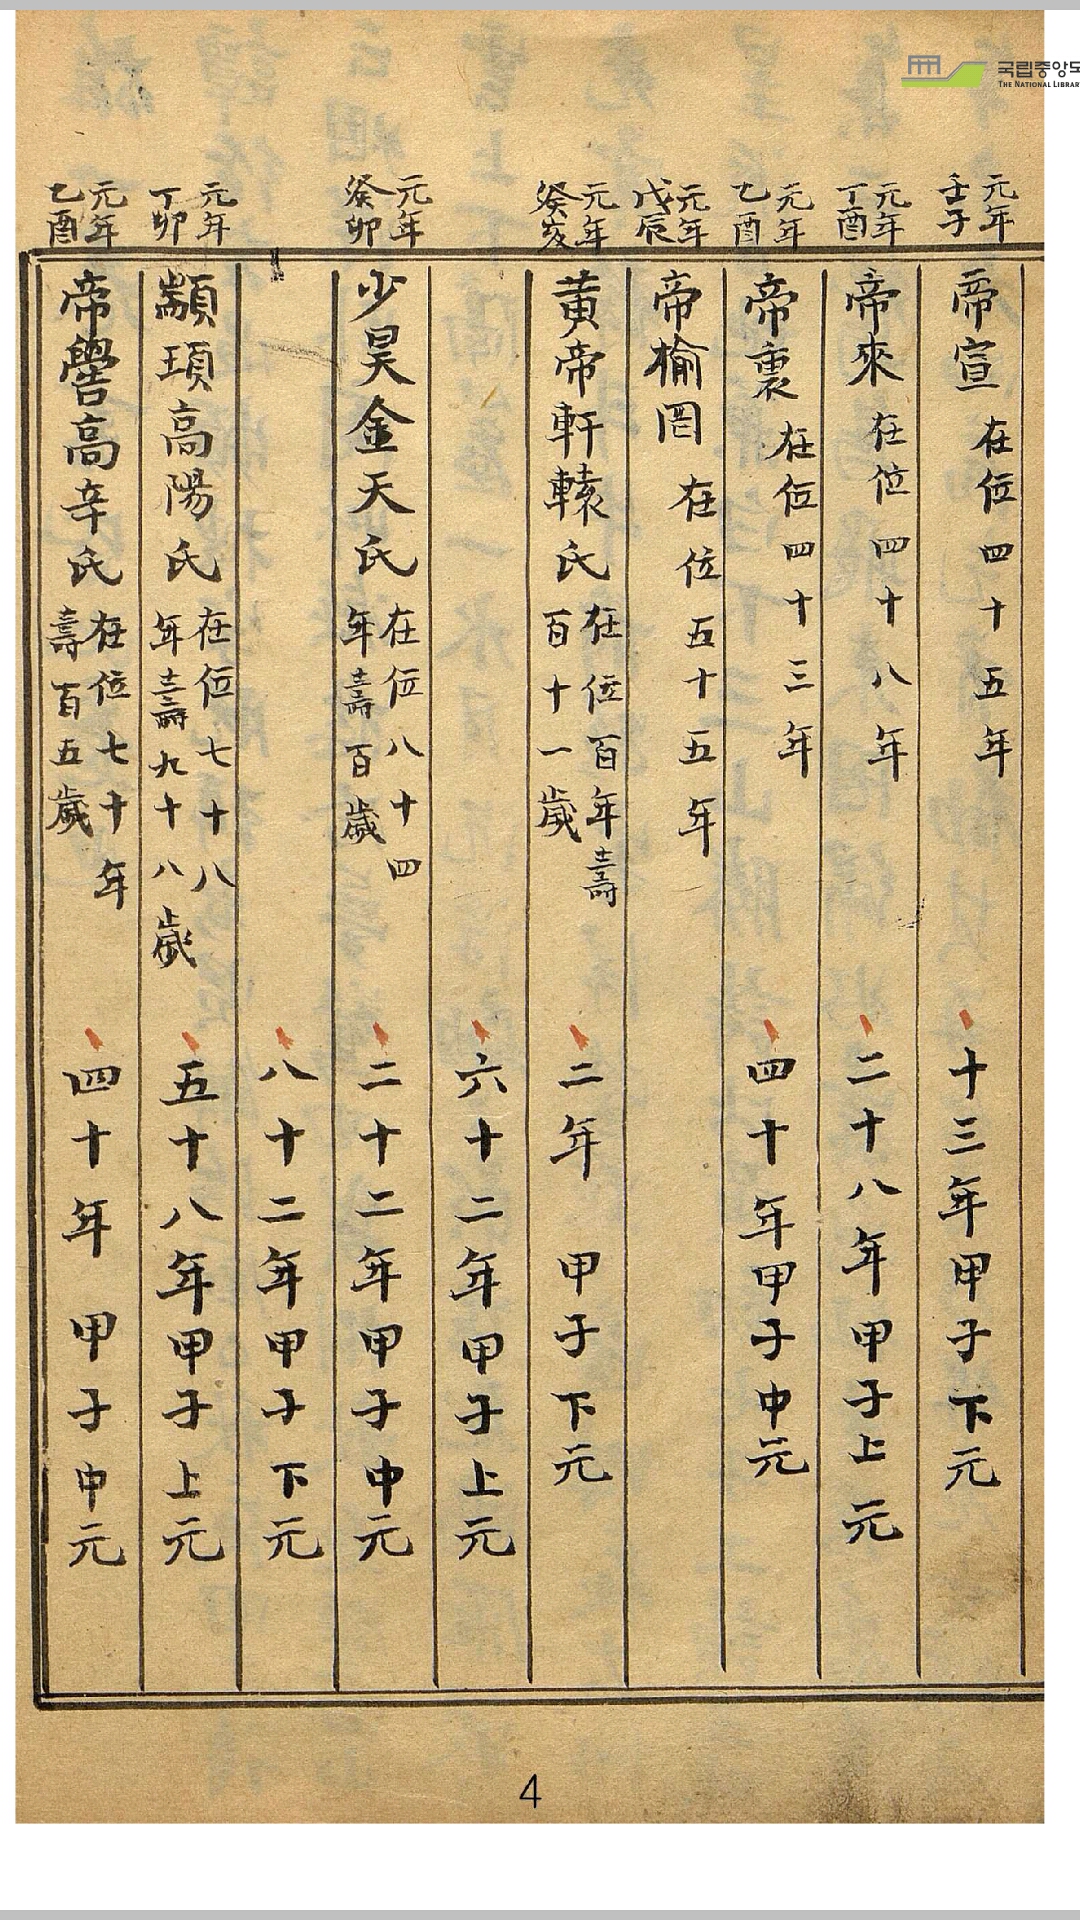 국립중앙도
THE NATIONAL LIBRARY
元年
壬子
帝宣 在位四十五年 十三年甲子下元
元年
丁酉
帝來 在位四十八年 二十八年甲子上元
元年
乙酉
帝裏 在位四十三年 四十年甲子中元
元年
戊辰
帝榆罔 在位五十五年
元年
癸亥
黃帝軒轅氏
在位百年壽
百十一歲
二年 甲子下元
六十二年甲子上元
元年
癸卯
少昊金天氏
在位八十四
年壽百歲
二十二年甲子中元
八十二年甲子下元
元年
丁卯
顓頊高陽氏
在位七十八
年壽九十八歲
五十八年甲子上元
元年
乙酉
帝嚳高辛氏
在位七十年
壽百五歲
四十年 甲子中元
4